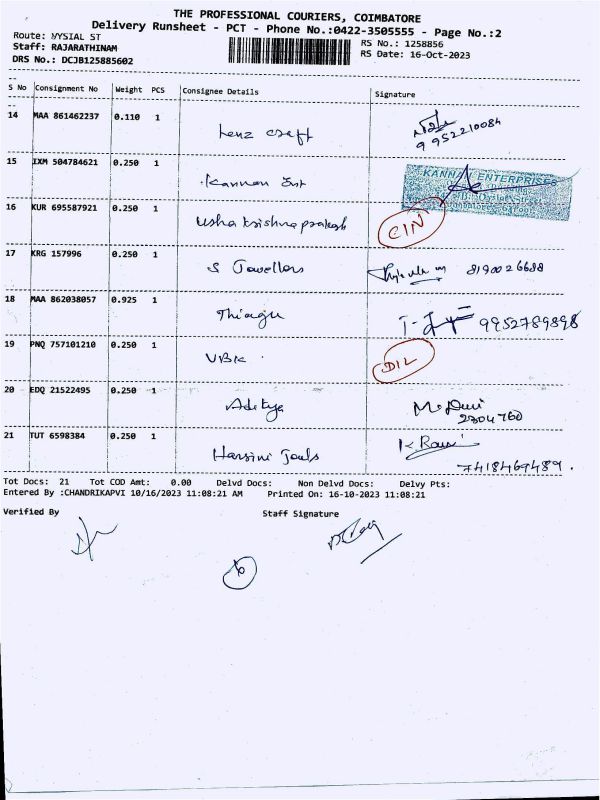 THE PROFESSIONAL COURIERS, COIMBATORE
Delivery Runsheet - PCT - Phone No.:0422-3505555 - Page No.:2
Route: NYSIAL ST
RS No.: 1258856
Staff: RAJARATHINAM
RS Date: 16-Oct-2023
DRS No.: DCJB125885602
S No Consignment No Weight PCS Consignee Details Signature
14 MAA 861462237 0.110 1
9952210084
15 IXM 504784621 0.250 1 Kannan Ent KANNAN ENTERPRISES
16 KUR 695587921 0.250 1 Usha Krishna prakash CIN
17 KRG 157996 0.250 1 S Jowellers 8190026688
18 MAA 862038057 0.925 1 Thiagu 9952789898
19 PNQ 757101210 0.250 1 VBK DIL
20 EDQ 21522495 0.250 1 Aditya
2304760
21 TUT 6598384 0.250 1 Harsini K. Ravi
7418469489.
Tot Docs: 21 Tot COD Amt: 0.00 Delvd Docs: Non Delvd Docs: Delvy Pts:
Entered By :CHANDRIKAPVI 10/16/2023 11:08:21 AM Printed On: 16-10-2023 11:08:21
Verified By Staff Signature